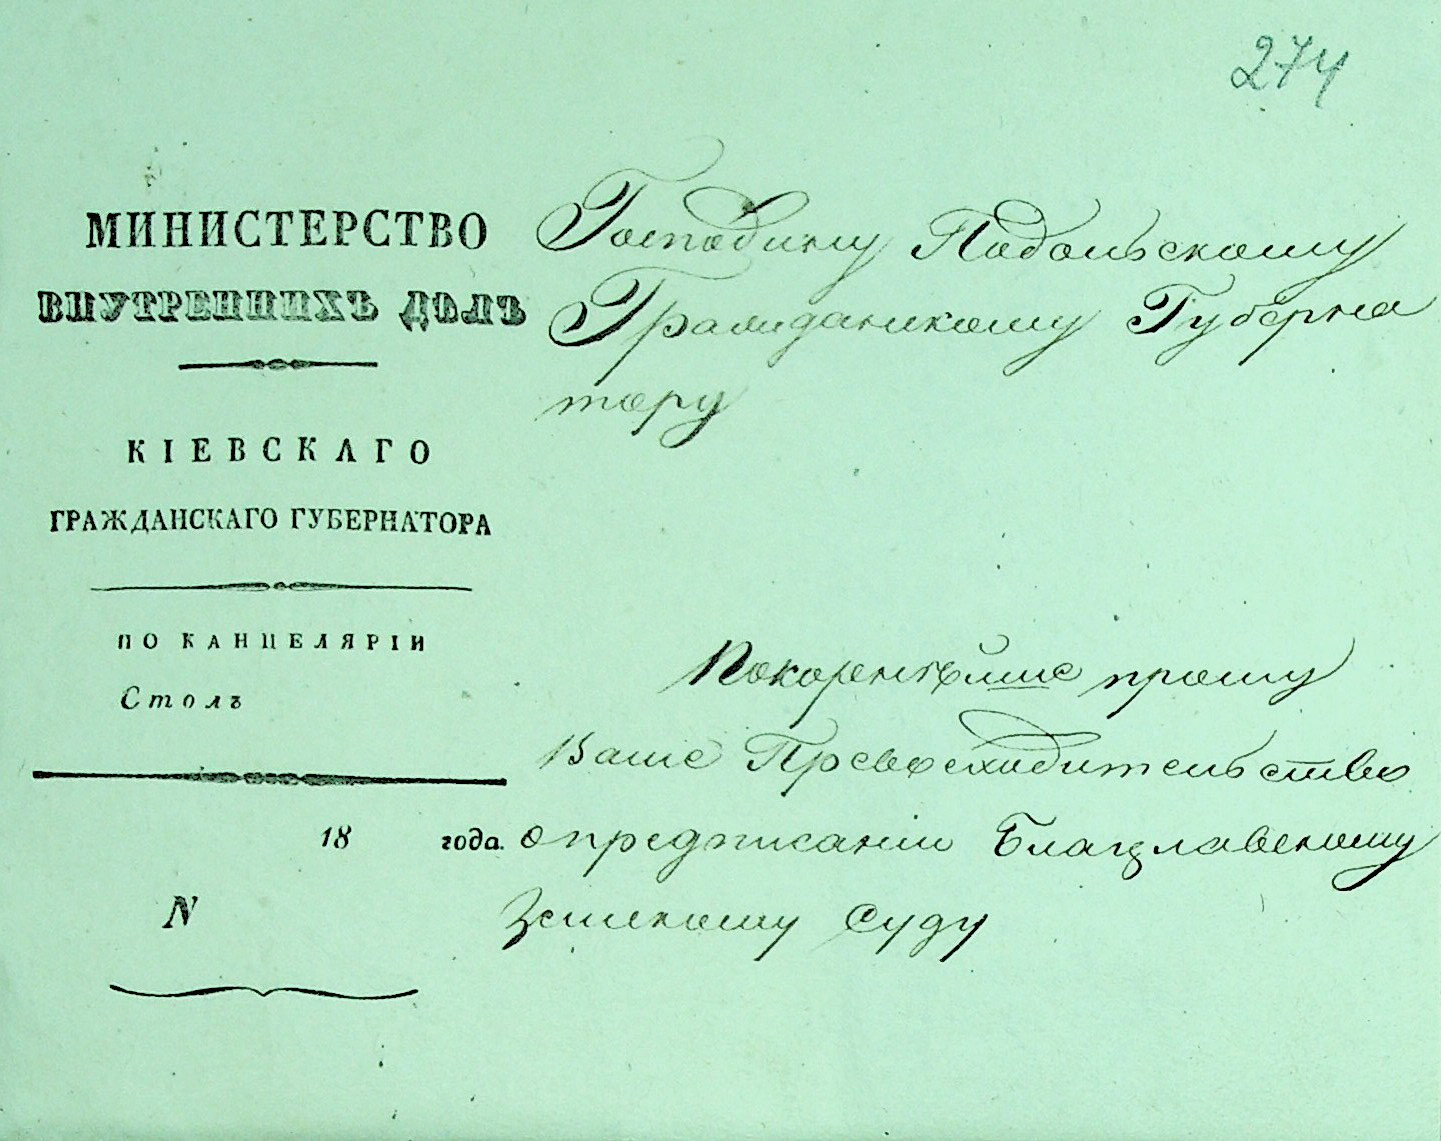 274
МИНИСТЕРСТВО
ВНУТРЕННИХЪ ДѢЛЪ
КІЕВСКАГО
ГРАЖДАНСКАГО ГУБЕРНАТОРА
ПО КАНЦЕЛЯРІИ
Столъ
18 года.
N
Господину Подольскому
Гражданскому Губерна
тору
Покорнѣйше прошу
Ваше Превосходительство
о предписании
Земскому Суду